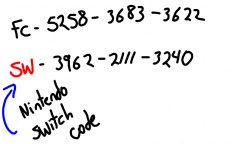 FC - 5258 - 3683 - 3622
SW - 3962 - 2111 - 3240
Nintendo
Switch
code